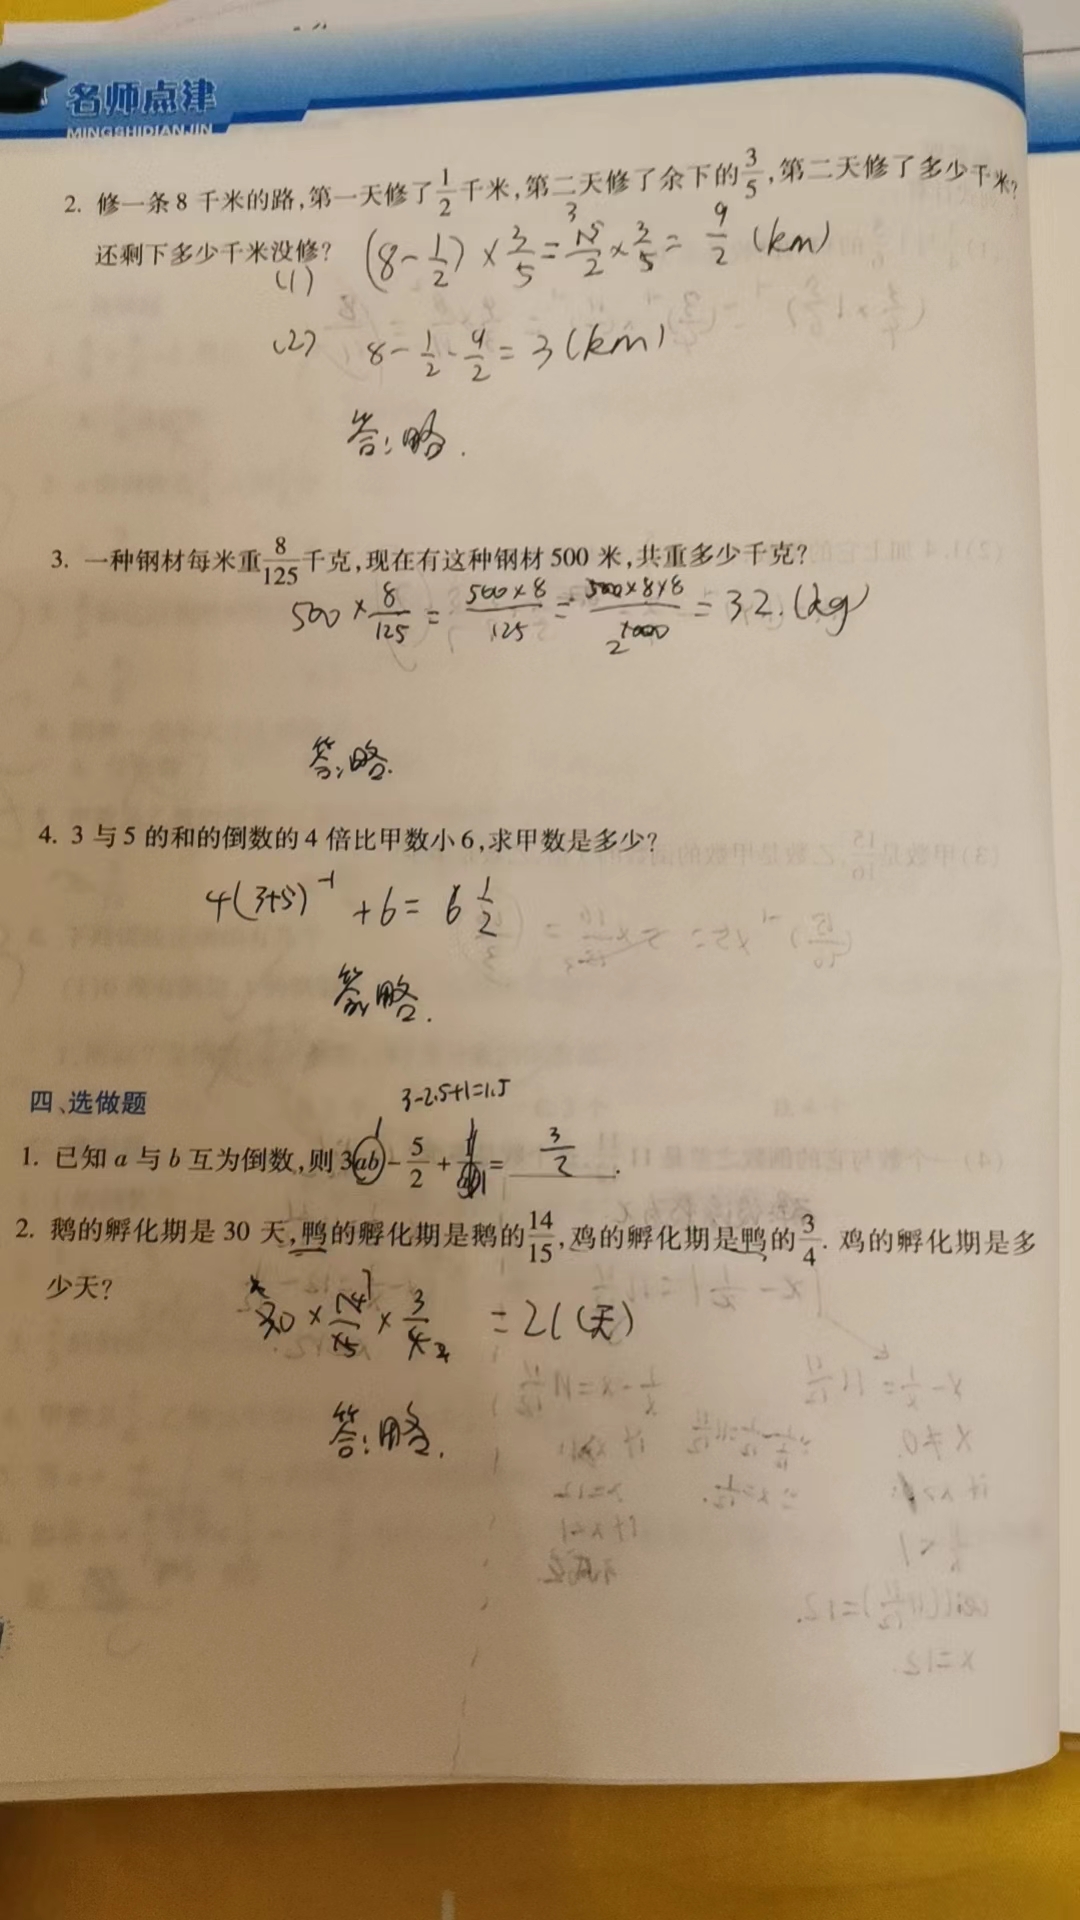 名师点津
MINGSHIDIANJIN
2. 修一条8千米的路,第一天修了1/2千米,第二天修了余下的3/5,第二天修了多少千米?
还剩下多少千米没修?
(1) (8-1/2)×3/5=15/2×3/5=9/2 (km)
3
(2) 8-1/2-9/2=3(km)
答:略.
3. 一种钢材每米重8/125千克,现在有这种钢材500米,共重多少千克?
500×8/125=500×8/125=500×8×8/1000=32.(kg)
2
答:略.
4. 3与5的和的倒数的4倍比甲数小6,求甲数是多少?
4(3+5)⁻¹+6=6 1/2
答:略.
四、选做题
3-2.5+1=1.5
1. 已知a与b互为倒数,则3ab-5/2+1/ab=3/2.
2. 鹅的孵化期是30天,鸭的孵化期是鹅的14/15,鸡的孵化期是鸭的3/4. 鸡的孵化期是多
少天?
30×14/15×3/4=21(天)
答:略.